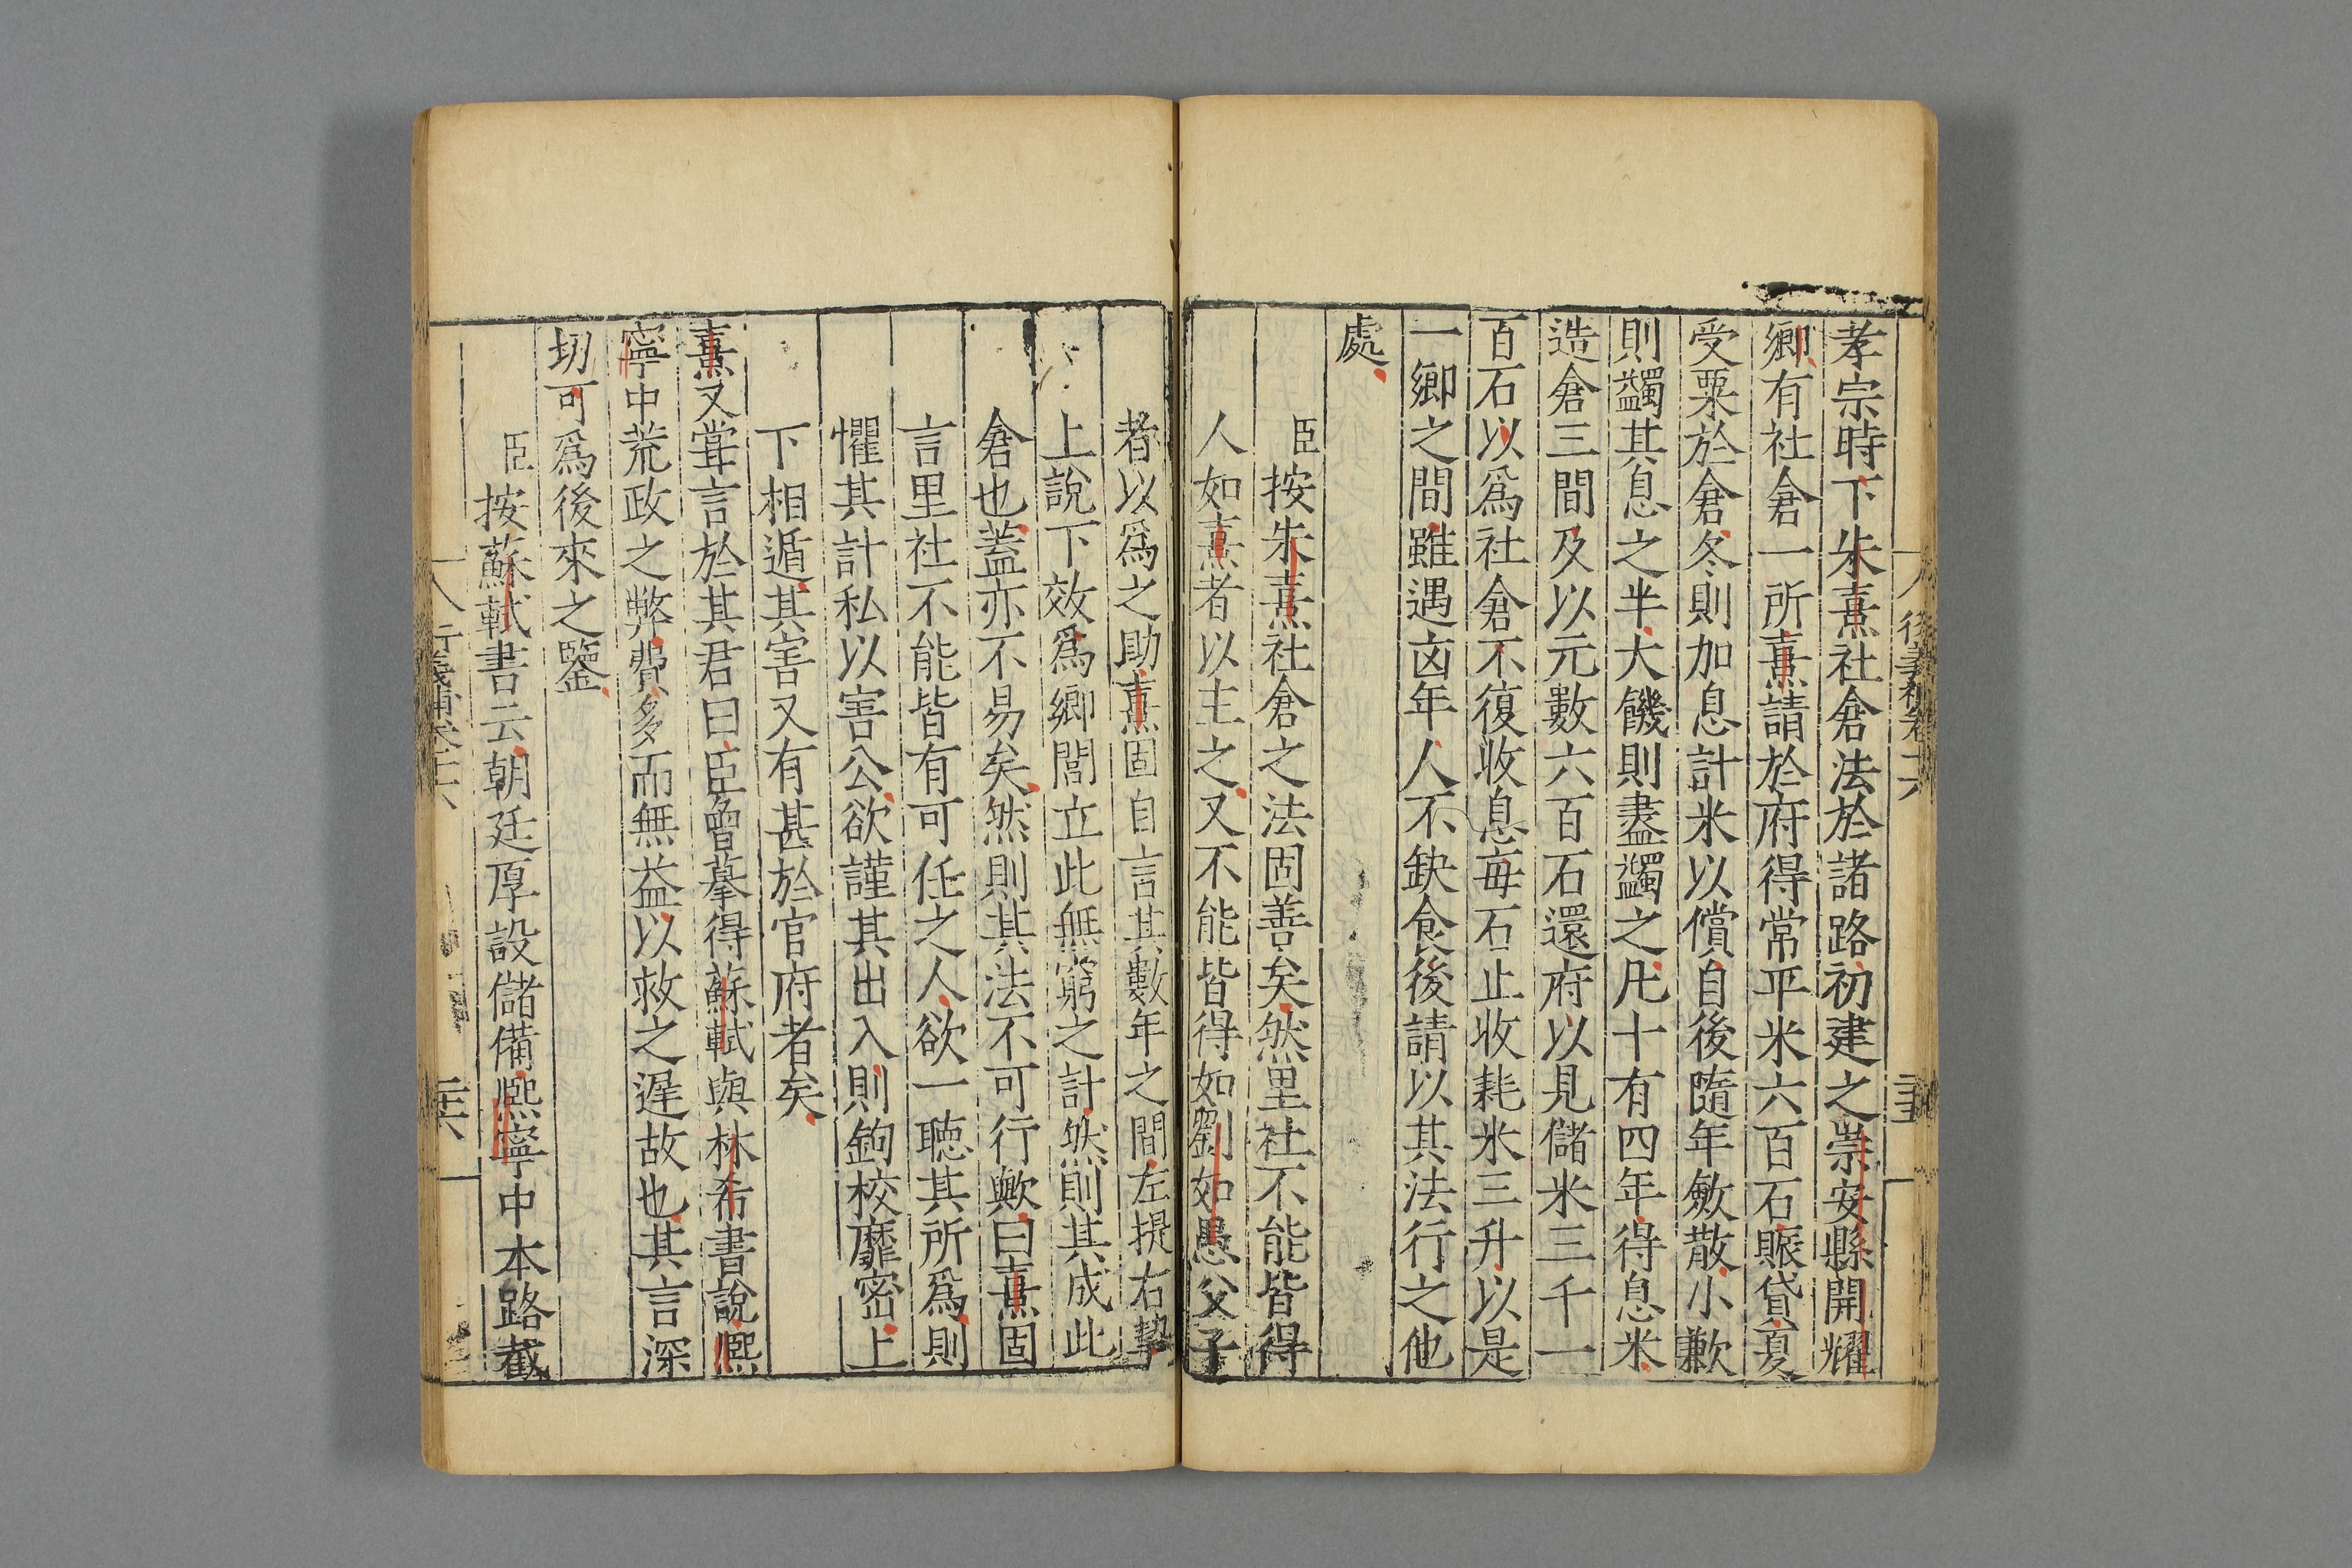 孝宗時下朱熹社倉法於諸路初建之崇安縣開耀
鄉有社倉一所熹請於府得常平米六百石賑貸夏
受粟於倉冬則加息計米以償自後隨年斂散小歉
則蠲其息之半大饑則盡蠲之凡十有四年得息米
造倉三間及以元數六百石還府以見儲米三千一
百石以爲社倉不復收息每石止收耗米三升以是
一鄉之間雖遇凶年人不缺食後請以其法行之他
處
臣按朱熹社倉之法固善矣然里社不能皆得
人如熹者以主之又不能皆得如劉如愚父子
者以爲之助熹固自言其數年之間左提右挈
上說下效爲鄉閭立此無窮之計然則其成此
倉也蓋亦不易矣然則其法不可行歟曰熹固
言里社不能皆有可任之人欲一聽其所爲則
懼其計私以害公欲謹其出入則鉤校靡密上
下相遁其害又有甚於官府者矣
熹又嘗言於其君曰臣曾摹得蘇軾與林希書說熙
寧中荒政之弊費多而無益以救之遲故也其言深
切可爲後來之鑒
臣按蘇軾書云朝廷厚設儲備熙寧中本路截